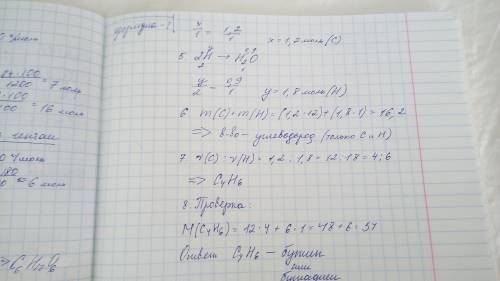 0,3 моль
84·100 / 1200 = 7 моль
·100 / 100 = 16 моль
0,4 моль
180 / = 6 моль
=> C6H12O6
формула - ?
x/1 = 1,2/1
x = 1,2 моль (C)
5 2H → H2O
y/2 = 0,9/1
y = 1,8 моль (H)
6 m(C)+m(H) = (1,2·12)+(1,8·1) = 16,2
=> в-во - углеводород (только C и H)
7 ν(C) : ν(H) = 1,2 : 1,8 = 12 : 18 = 4:6
=> C4H6
8. Проверка:
M(C4H6) = 12·4 + 6·1 = 48 + 6 = 54
Ответ C4H6 - бутин
или
бутадиен